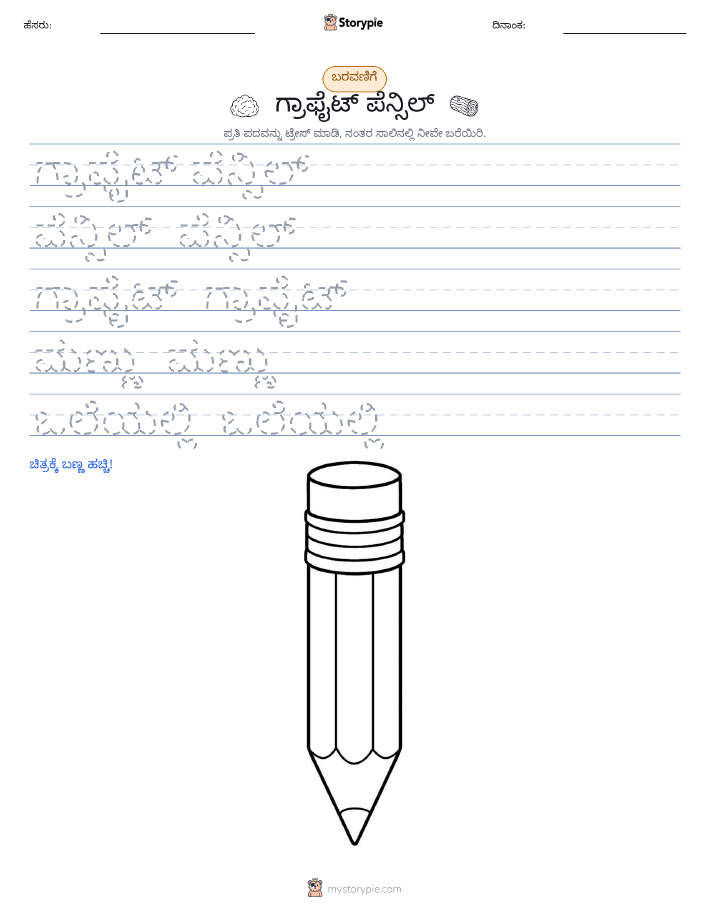 ಹೆಸರು:
Storypie
ದಿನಾಂಕ:
ಬರವಣಿಗೆ
ಗ್ರಾಫೈಟ್ ಪೆನ್ಸಿಲ್
ಪ್ರತಿ ಪದವನ್ನು ಟ್ರೇಸ್ ಮಾಡಿ, ನಂತರ ಸಾಲಿನಲ್ಲಿ ನೀವೇ ಬರೆಯಿರಿ.
ಗ್ರಾಫೈಟ್ ಪೆನ್ಸಿಲ್
ಪೆನ್ಸಿಲ್ ಪೆನ್ಸಿಲ್
ಗ್ರಾಫೈಟ್ ಗ್ರಾಫೈಟ್
ಮಣ್ಣು ಮಣ್ಣು
ಒಲೆಯಲ್ಲಿ ಒಲೆಯಲ್ಲಿ
ಚಿತ್ರಕ್ಕೆ ಬಣ್ಣ ಹಚ್ಚಿ!
mystorypie.com